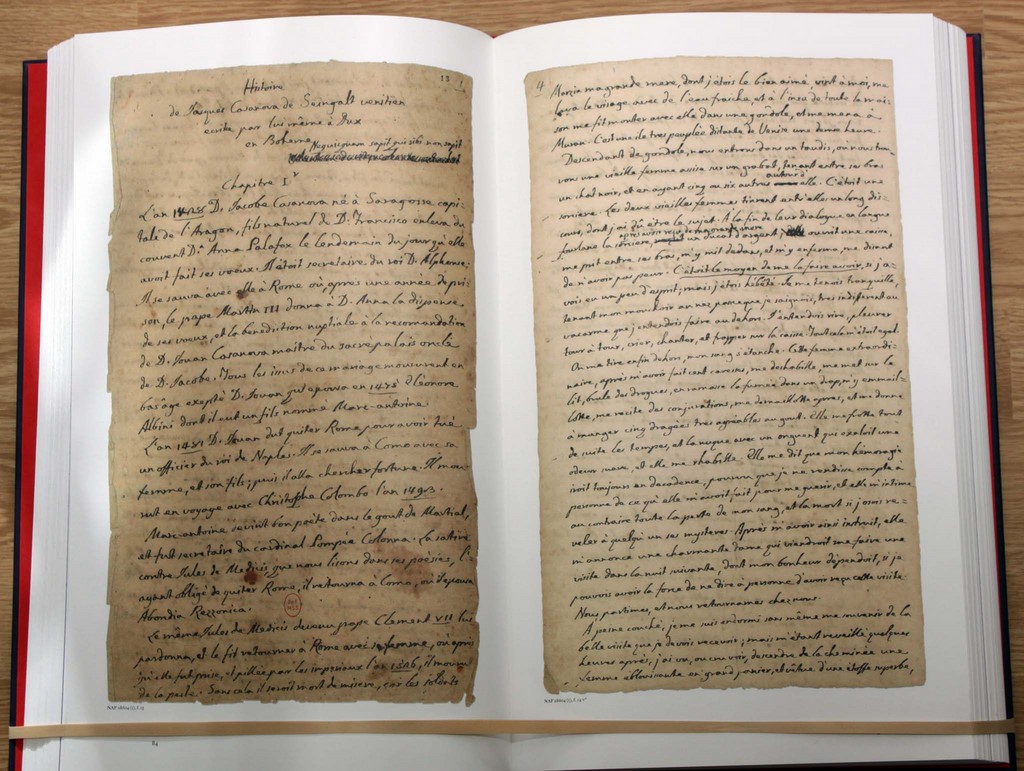 13 1
Histoire
de Jaques Casanova de Seingalt venitien
ecrite par lui même à Dux
en Boheme
Nequicquam sapit qui sibi non sapit
Chapitre I.r
L'an 1428 D. Jacobe Casanova né à Saragosse capi-
tale de l'Aragon, fils naturel de D. Francisco enleva du
couvent D.a Anna Palafox le lendemain du jour qu'elle
avoit fait ses voeux. Il étoit secretaire du roi D. Alphonse.
Il se sauva avec elle à Rome où, après une année de pri-
son, le pape Martin III donna à D. Anna la dispense
de ses voeux, et la benediction nuptiale à la recomandation
de D. Jouan Casanova maitre du sacré palais oncle
de D. Jacobe. Tous les issus de ce mariage moururent en
bas âge excepté D. Jouan qui epousa en 1475 Eléonore
Albini dont il eut un fils nommé Marc-antoine.
L'an 1481 D. Jouan dut quiter Rome pour avoir tué
un officier du roi de Naples. Il se sauva à Como avec sa
femme, et son fils; puis il alla chercher fortune. Il mou-
rut en voyage avec Christophe Colombo l'an 1493.
Marc-antoine devint bon poète dans le gout de Martial,
et fut secretaire du cardinal Pompée Colonna. La satire
contre Jules de Medicis que nous lisons dans ses poésies, l'
ayant obligé de quiter Rome, il retourna à Como, où il epousa
Abondia Rezzonica.
Le même Jules de Medicis devenu pape Clement VII lui
pardonna, et le fit retourner à Rome avec sa femme, où après
qu'elle fut prise, et pillée par les imperiaux l'an 1526, il mourut
de la peste. Sans cela il seroit mort de misere, car les soldats
NAF 18604 (1), f. 13
84
4
Marzia ma grande mere, dont j'étois le bien aimé, vint à moi, me
lava le visage avec de l'eau fraiche, et à l'insu de toute la mai-
son me fit monter avec elle dans une gondole, et me mena à
Muran. C'est une ile tres peuplée distante de Venise une demie heure.
Descendant de gondole, nous entrons dans un taudis, où nous trou-
vons une vieille femme assise sur un grabat, tenant entre ses bras
un chat noir, et en ayant cinq ou six autres autour d'elle. C'étoit une
sorciere. Les deux vieilles femmes tinrent entr'elles un long dis-
cours, dont j'ai dû être le sujet. À la fin de leur dialogue en langue
fourlane la sorciere après avoir reçu de ma grande mere un ducat d'argent, ouvrit une caisse,
me prit entre ses bras, m'y mit dedans, et m'y enferma, me disant
de n'avoir pas peur. C'étoit le moyen de me la faire avoir, si j'a-
vois eu un peu d'esprit; mais j'étois hébété. Je me tenois tranquille,
tenant mon mouchoir au nez parceque je saignois, tres indifferent au
vacarme que j'entendois faire au dehors. J'entendois rire, pleurer
tour à tour, crier, chanter, et frapper sur la caisse. Tout cela m'étoit egal.
On me tire enfin dehors, mon sang s'étanche. Cette femme extraordi-
naire, après m'avoir fait cent caresses, me deshabille, me met sur le
lit, brule des drogues, en ramasse la fumée dans un drap, m'y emmail-
lotte, me recite des conjurations, me démaillotte après, et me donne
à manger cinq dragées tres agréables au gout. Elle me frotte tout
de suite les tempes, et la nuque avec un onguent qui exaloit une
odeur suave, et elle me rhabille. Elle me dit que mon hemoragie
iroit toujours en decadence, pourvu que je ne rendisse compte à
personne de ce qu'elle m'avoit fait pour me guerir, et elle m'intime
au contraire toute la perte de mon sang, et la mort si j'osois re-
veler à quelqu'un ses mysteres. Après m'avoir ainsi instruit, elle
m'annonce une charmante dame qui viendroit me faire une
visite dans la nuit suivante, dont mon bonheur dépendoit, si je
pouvois avoir la force de ne dire à personne d'avoir reçu cette visite.
Nous partimes, et nous retournames chez nous.
À peine couché, je me suis endormi sans même me souvenir de la
belle visite que je devois recevoir; mais m'étant reveillé quelques
heures après, j'ai vu, ou cru voir, descendre de la cheminée une
femme eblouissante en grand panier, et vêtue d'une étoffe superbe,
NAF 18604 (1), f. 14 vº